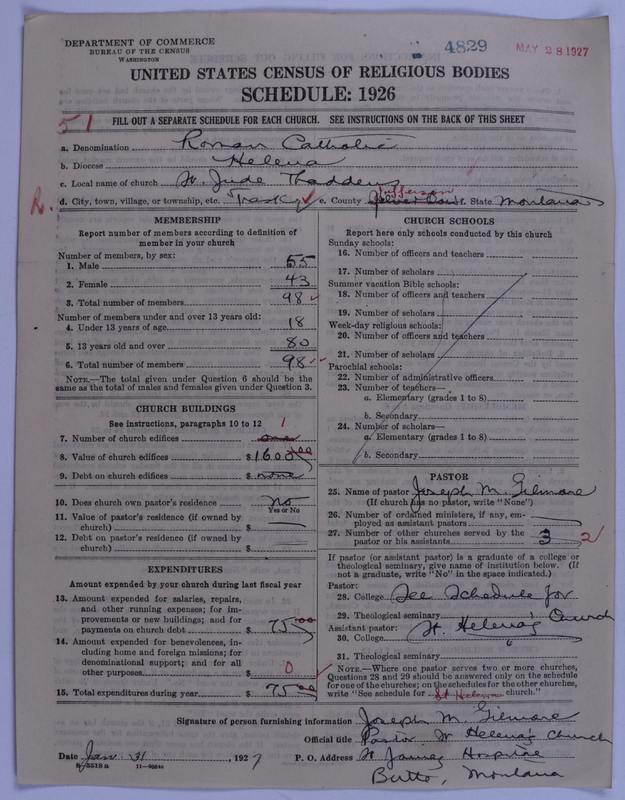 DEPARTMENT OF COMMERCE
BUREAU OF THE CENSUS
WASHINGTON
4829
MAY 28 1927
UNITED STATES CENSUS OF RELIGIOUS BODIES
SCHEDULE: 1926
51
FILL OUT A SEPARATE SCHEDULE FOR EACH CHURCH. SEE INSTRUCTIONS ON THE BACK OF THIS SHEET
a. Denomination Roman Catholic
b. Diocese Helena
c. Local name of church St. Jude Thaddeus
R. d. City, town, village, or township, etc. Trask e. County Jefferson Silver Bow f. State Montana
MEMBERSHIP
Report number of members according to definition of member in your church
Number of members, by sex:
1. Male 55
2. Female 43
3. Total number of members 98
Number of members under and over 13 years old:
4. Under 13 years of age 18
5. 13 years old and over 80
6. Total number of members 98
NOTE.—The total given under Question 6 should be the same as the total of males and females given under Question 3.
CHURCH BUILDINGS
See instructions, paragraphs 10 to 12
7. Number of church edifices one 1
8. Value of church edifices $ 1600.00
9. Debt on church edifices $ none
10. Does church own pastor's residence No
Yes or No
11. Value of pastor's residence (if owned by church) $
12. Debt on pastor's residence (if owned by church) $
EXPENDITURES
Amount expended by your church during last fiscal year
13. Amount expended for salaries, repairs, and other running expenses; for improvements or new buildings; and for payments on church debt $ 75.00
14. Amount expended for benevolences, including home and foreign missions; for denominational support; and for all other purposes $ 0
15. Total expenditures during year $ 75.00
CHURCH SCHOOLS
Report here only schools conducted by this church
Sunday schools:
16. Number of officers and teachers
17. Number of scholars
Summer vacation Bible schools:
18. Number of officers and teachers
19. Number of scholars
Week-day religious schools:
20. Number of officers and teachers
21. Number of scholars
Parochial schools:
22. Number of administrative officers
23. Number of teachers—
a. Elementary (grades 1 to 8)
b. Secondary
24. Number of scholars—
a. Elementary (grades 1 to 8)
b. Secondary
PASTOR
25. Name of pastor Joseph M. Gilmore
(If church has no pastor, write "None")
26. Number of ordained ministers, if any, employed as assistant pastors
27. Number of other churches served by the pastor or his assistants 3 2
If pastor (or assistant pastor) is a graduate of a college or theological seminary, give name of institution below. (If not a graduate, write "No" in the space indicated.)
Pastor:
28. College See Schedule for
29. Theological seminary St. Helena's Church
Assistant pastor:
30. College
31. Theological seminary
NOTE.—Where one pastor serves two or more churches, Questions 28 and 29 should be answered only on the schedule for one of the churches; on the schedules for the other churches, write "See schedule for St Helena church."
Signature of person furnishing information Joseph M. Gilmore
Official title Pastor St Helena's Church
Date Jan 31, 1927 P. O. Address St James Hospital
8-5518 a
Butte, Montana